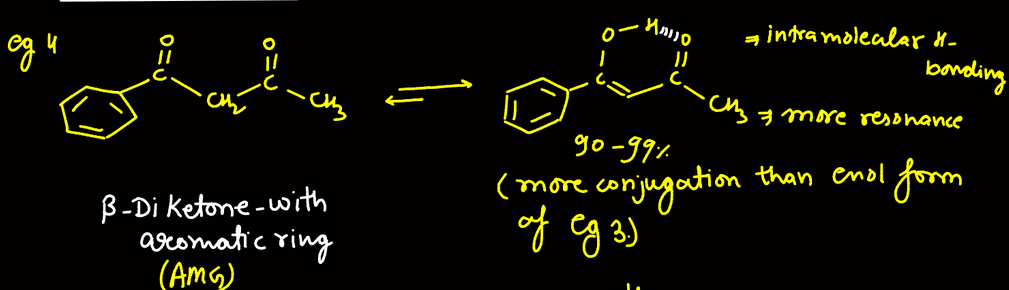 eg 4
O
C
CH2
O
C
CH3
O-H
O
C
C
CH3
⇒ intramolecular H-
bonding
⇒ more resonance
90-99%
(more conjugation than enol form
of eg 3)
β-DiKetone-with
aromatic ring
(AMG)